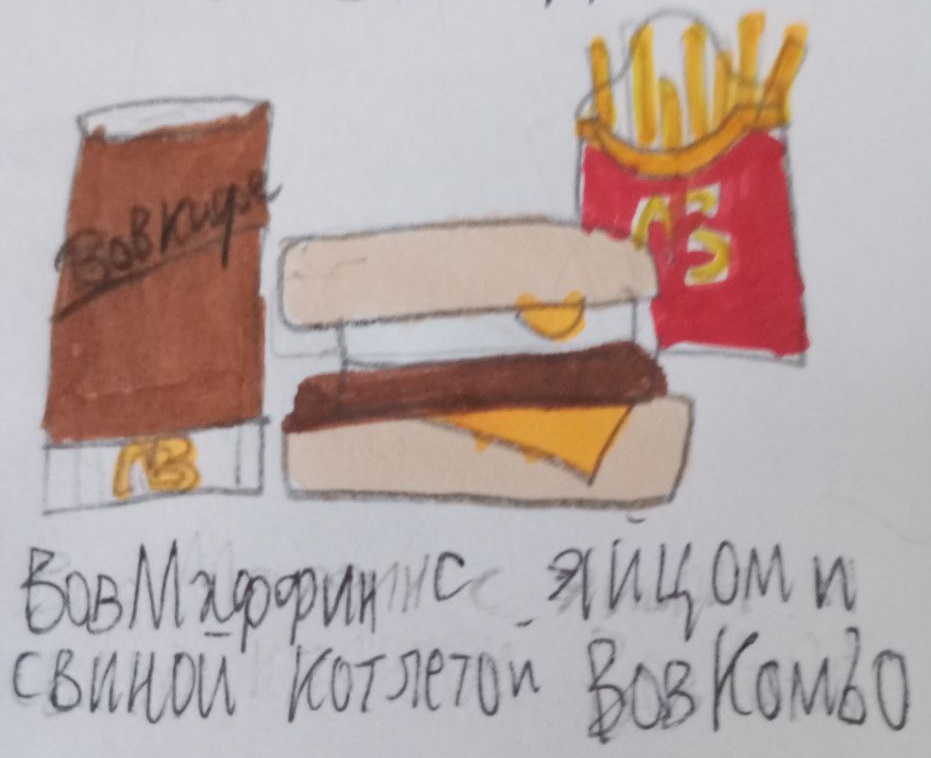 ВовКифе
ЛВ
ЛВ
ВовМафффин с яйцом и
свиной котлетой ВовКомбо